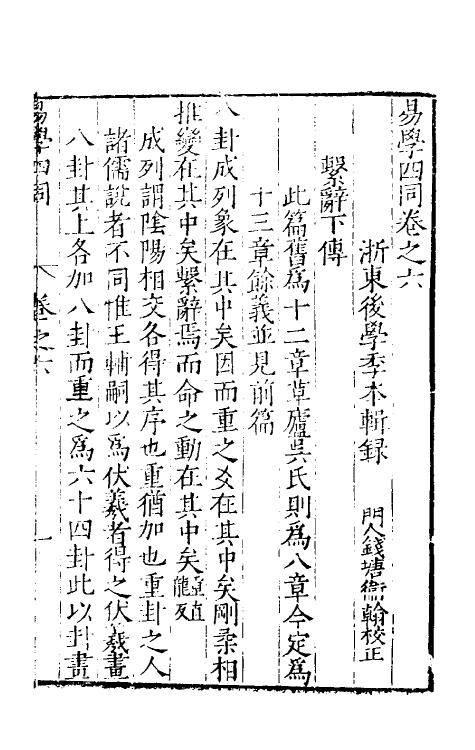 易學四同卷之六
浙東後學季本輯録 門人錢塘衞翰校正
繫辭下傳
此篇舊為十二章草廬吳氏則為八章今定為
十三章餘義並見前篇
八卦成列象在其中矣因而重之爻在其中矣剛柔相
推變在其中矣繫辭焉而命之動在其中矣
成列謂陰陽相交各得其序也重猶加也重卦之人
諸儒說者不同惟王輔嗣以為伏羲者得之伏羲畫
八卦其上各加八卦而重之為六十四卦此以卦畫
易學四同 卷之六 一